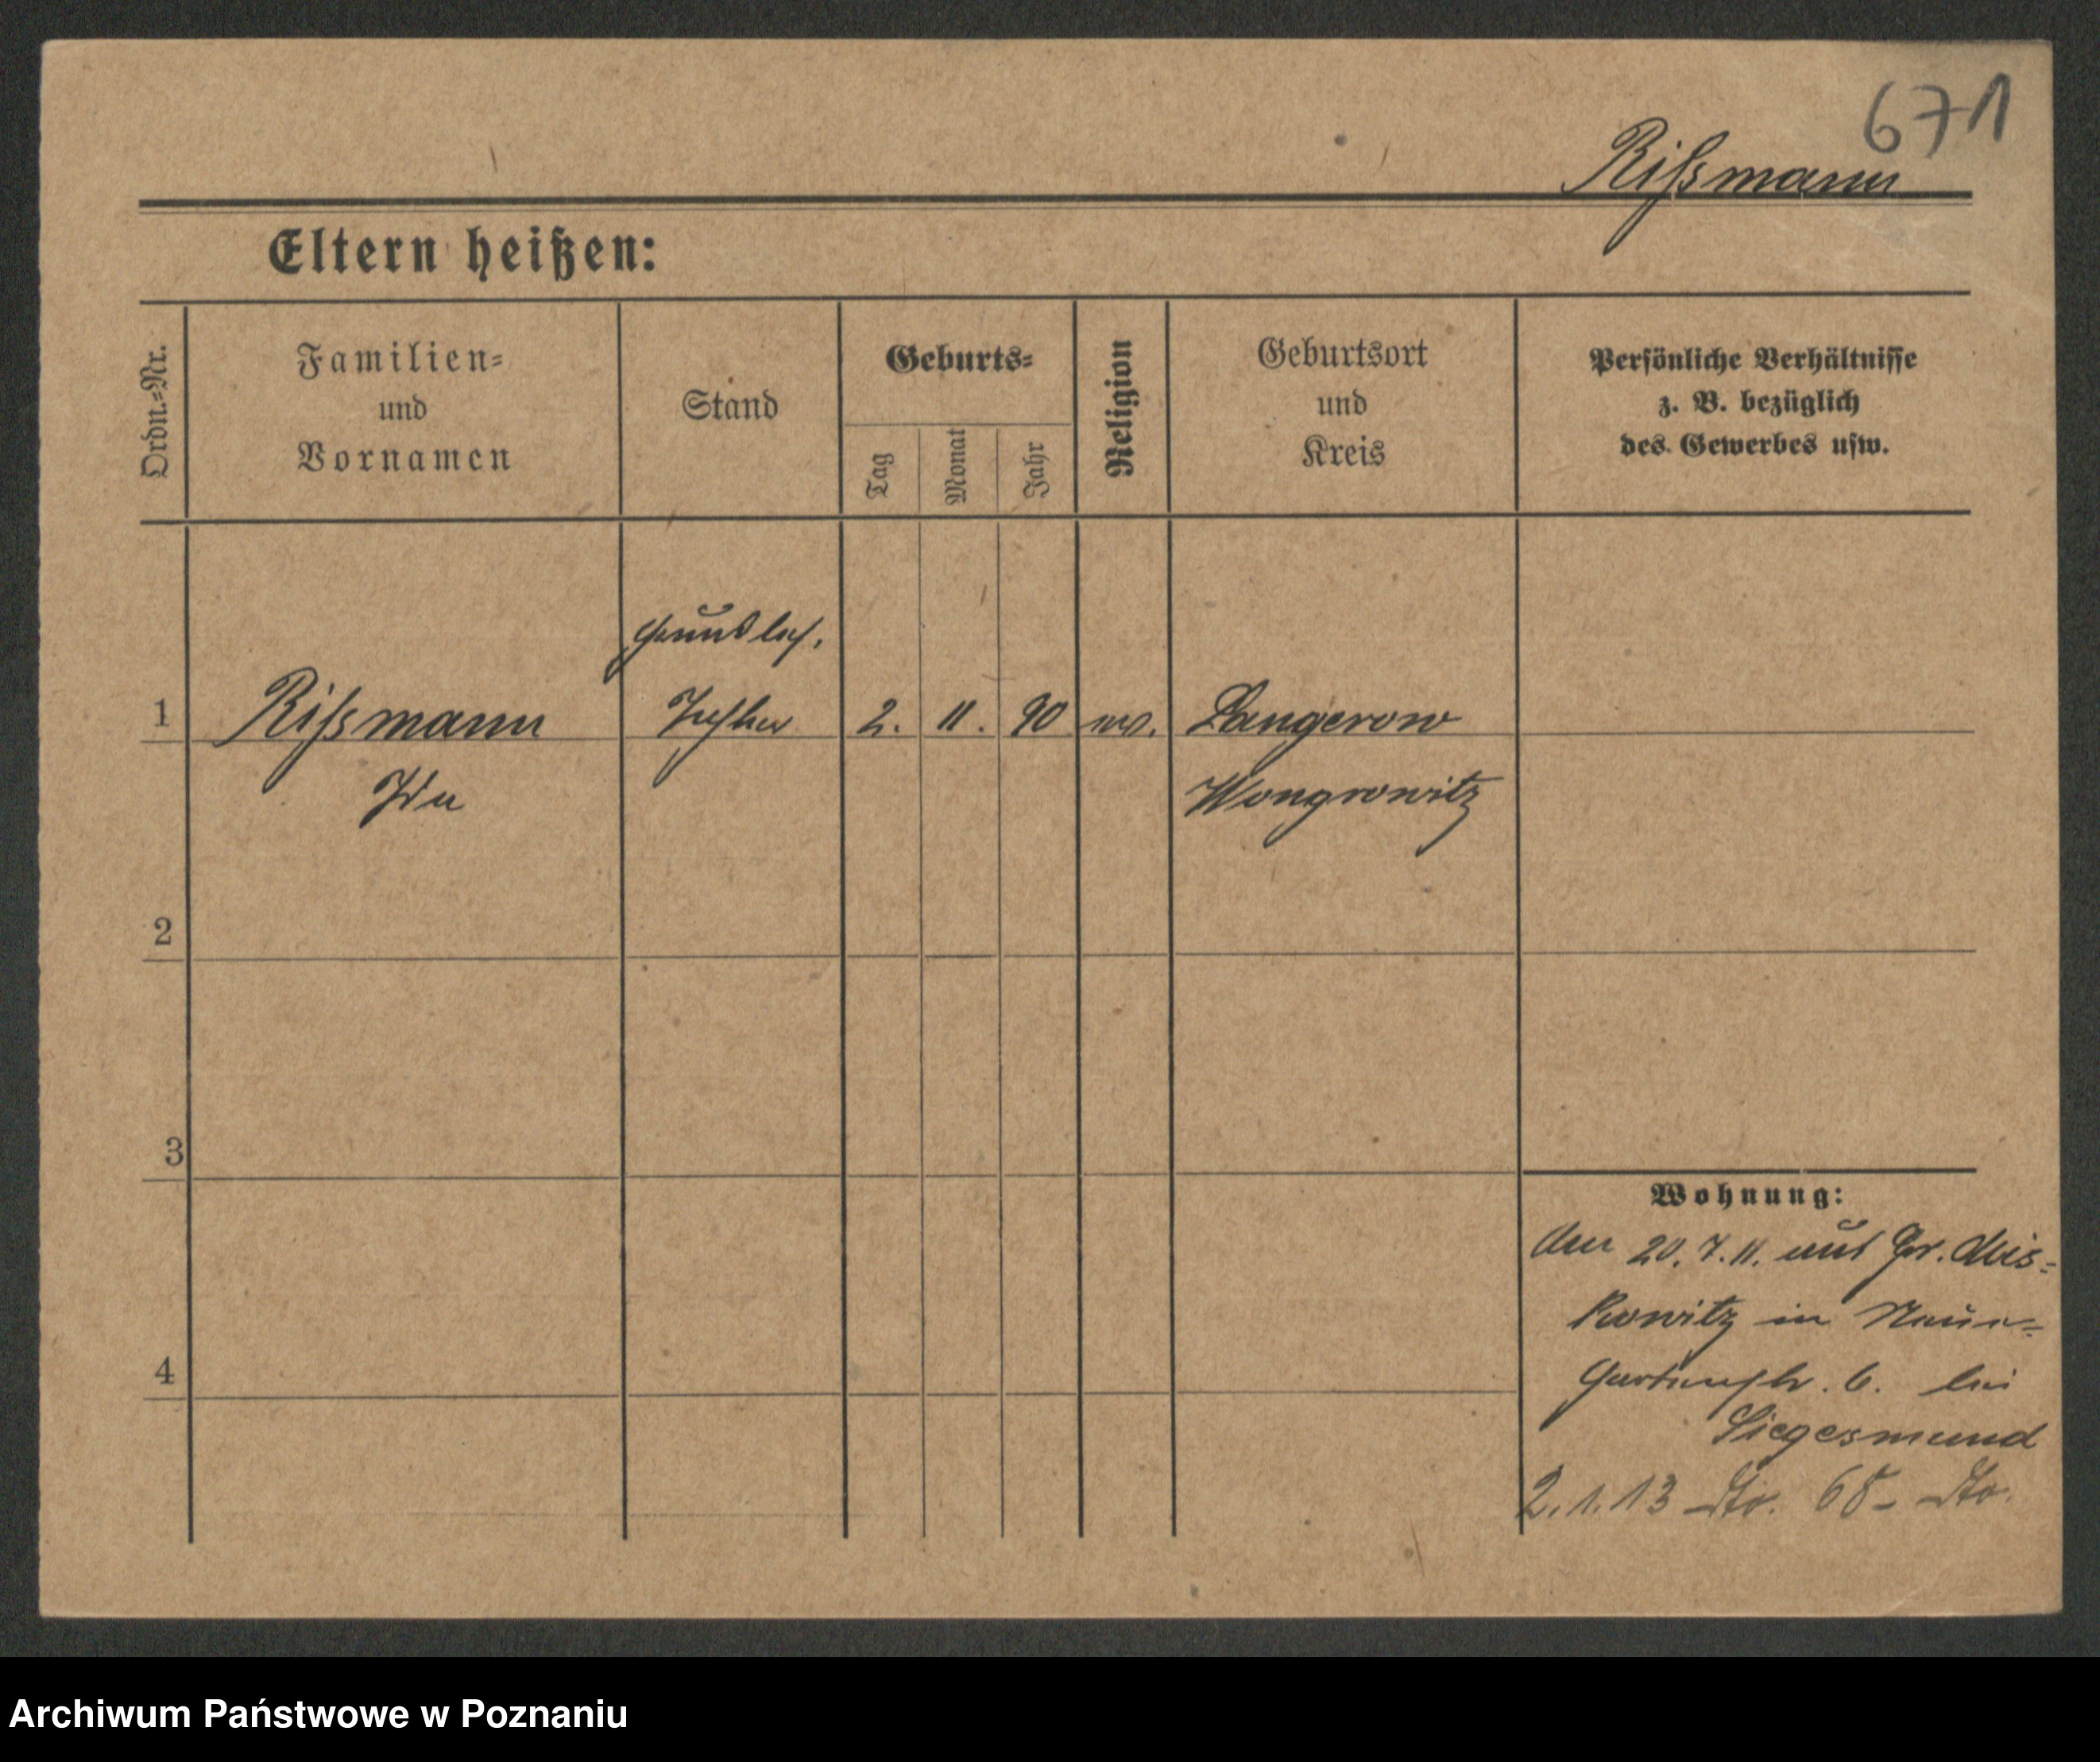 671
Rißmann
Eltern heißen:
Ordn.-Nr.
Familien-
und
Vornamen
Stand
Geburts-
Tag
Monat
Jahr
Religion
Geburtsort
und
Kreis
Persönliche Verhältnisse
z. B. bezüglich
des Gewerbes usw.
1
Rißmann
Ida
2. 11. 90
Langerow
Wongrowitz
2
3
4
Wohnung:
20. 7. 11. aus Gr. Mis-
kowitz in Neue-
Gartenstr. 6. bei
Siegesmund
2. 1. 13
Archiwum Państwowe w Poznaniu